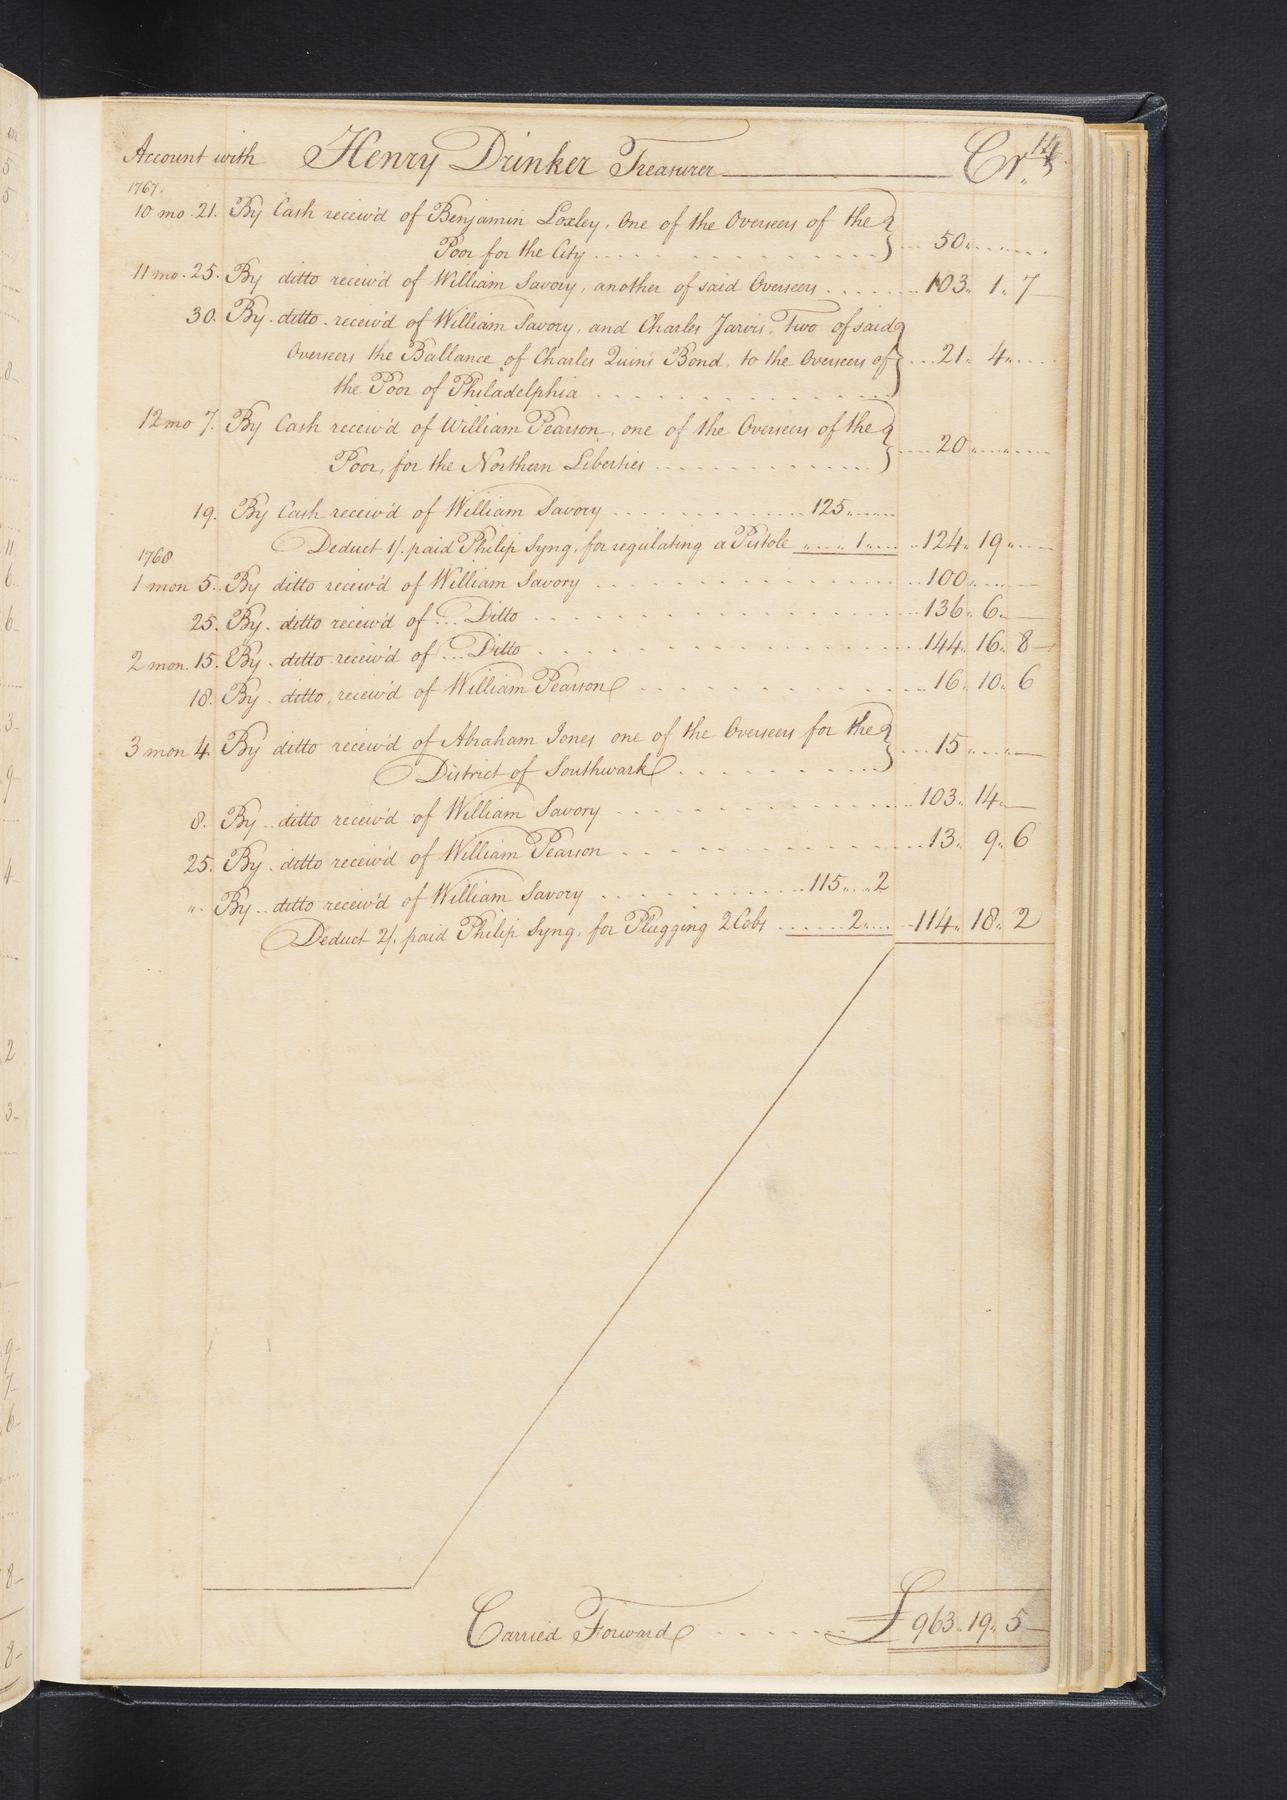 Account with Henry Drinker Treasurer Cr. 14
1767.
10 mo. 21. By Cash receiv'd of Benjamin Loxley, One of the Overseers of the
Poor for the City 50
11 mo. 25. By ditto receiv'd of William Savory, another of said Overseers 103 1 7
30. By ditto receiv'd of William Savory, and Charles Jarvis, Two of said
Overseers the Ballance of Charles Quin's Bond, to the Overseers of 21 4
the Poor of Philadelphia
12 mo 7. By Cash receiv'd of William Pearson, one of the Overseers of the
Poor, for the Northern Liberties 20
19. By Cash receiv'd of William Savory 125
Deduct 1/. paid Philip Syng, for regulating a Pistole 1 124 19
1768
1 mon 5. By ditto receiv'd of William Savory 100
25. By ditto receiv'd of Ditto 136 6
2 mon. 15. By ditto receiv'd of Ditto 144 16 8
18. By ditto receiv'd of William Pearson 16 10 6
3 mon 4. By ditto receiv'd of Abraham Jones one of the Overseers for the
District of Southwark 15
8. By ditto receiv'd of William Savory 103 14
25. By ditto receiv'd of William Pearson 13 9 6
" By ditto receiv'd of William Savory 115 2
Deduct 2/. paid Philip Syng, for Plugging 2 Cobs 2 114 18 2
Carried Forward £ 963 19 5